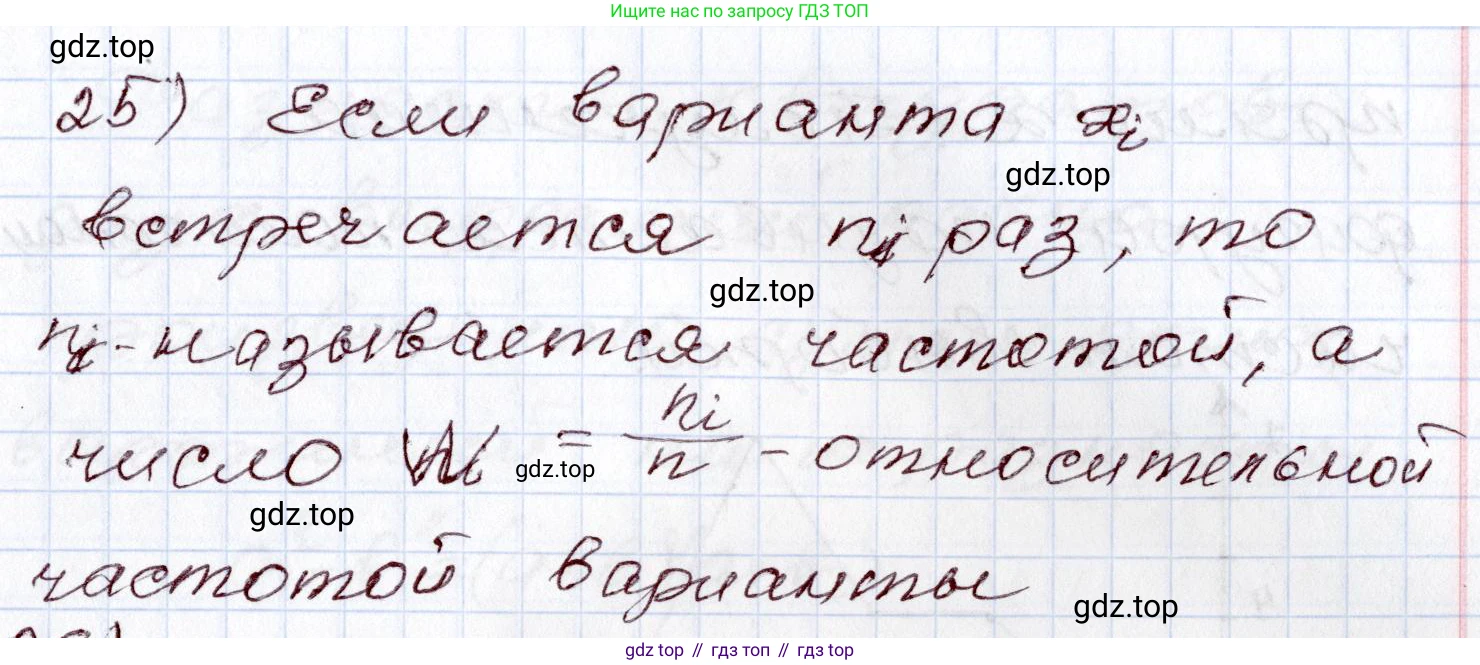 Ищите нас по запросу ГДЗ ТОП
gdz.top
25) Если варианта xᵢ
gdz.top
встречается nᵢ раз, то
gdz.top
nᵢ - называется частотой, а
число Wᵢ = nᵢ/n - относительной
gdz.top
gdz.top
частотой варианты
gdz.top
gdz.top // гдз топ // гдз top